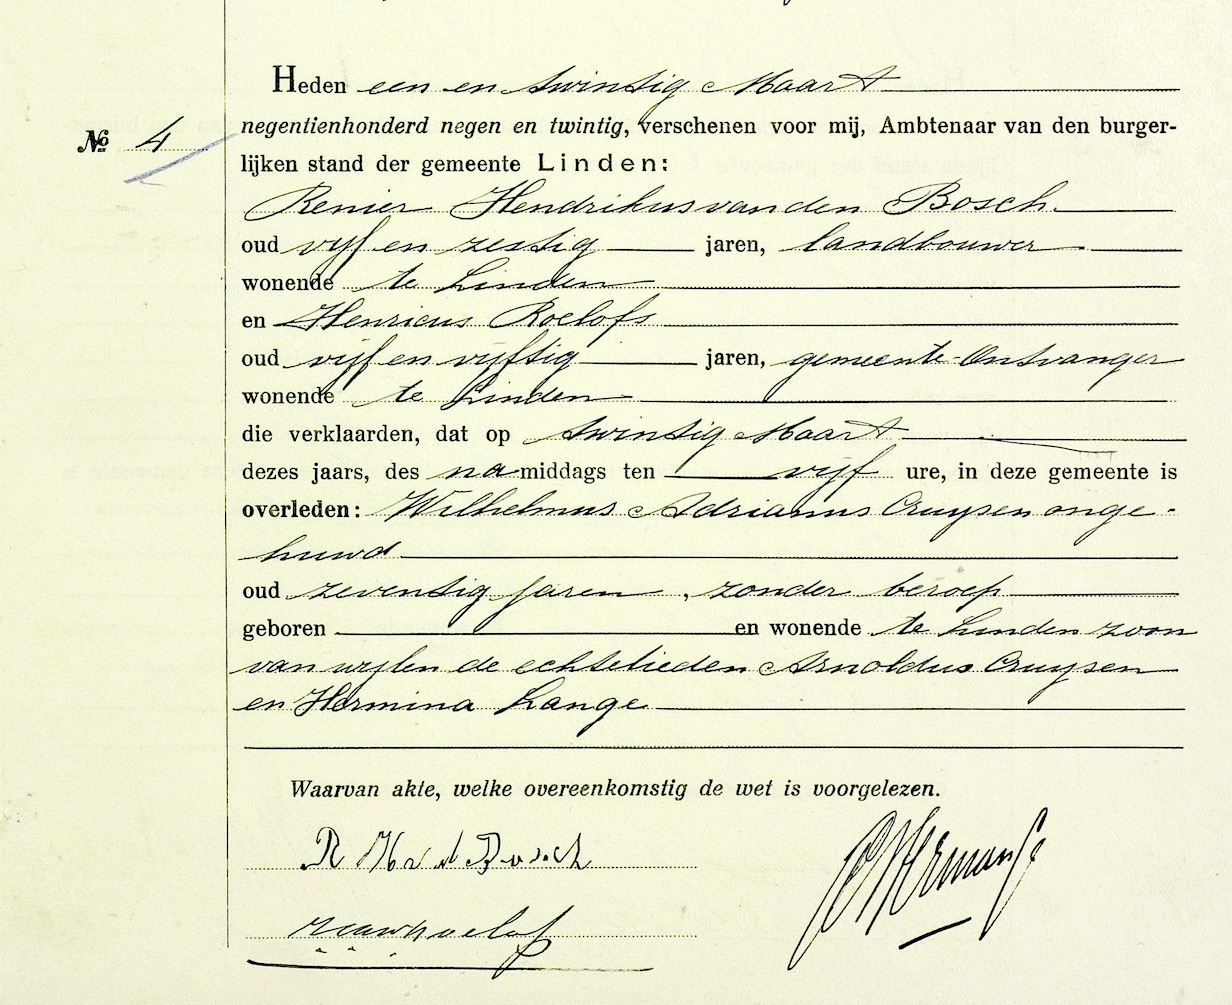 Heden een en twintig Maart
No 4
negentienhonderd negen en twintig, verschenen voor mij, Ambtenaar van den burger-
lijken stand der gemeente Linden:
Renier Hendrikus van den Bosch.
oud vijf en zestig jaren, landbouwer.
wonende te Linden
en Henricus Roelofs
oud vijf en vijftig jaren, gemeente-Ontvanger
wonende te Linden
die verklaarden, dat op twintig Maart
dezes jaars, des na middags ten vijf ure, in deze gemeente is
overleden: Wilhelmus Adrianus Cruijsen onge-
huwd
oud zeventig jaren, zonder beroep
geboren en wonende te Linden zoon
van wijlen de echtelieden Arnoldus Cruijsen
en Hermina Lange
Waarvan akte, welke overeenkomstig de wet is voorgelezen.
R H v d Bosch
Hermans